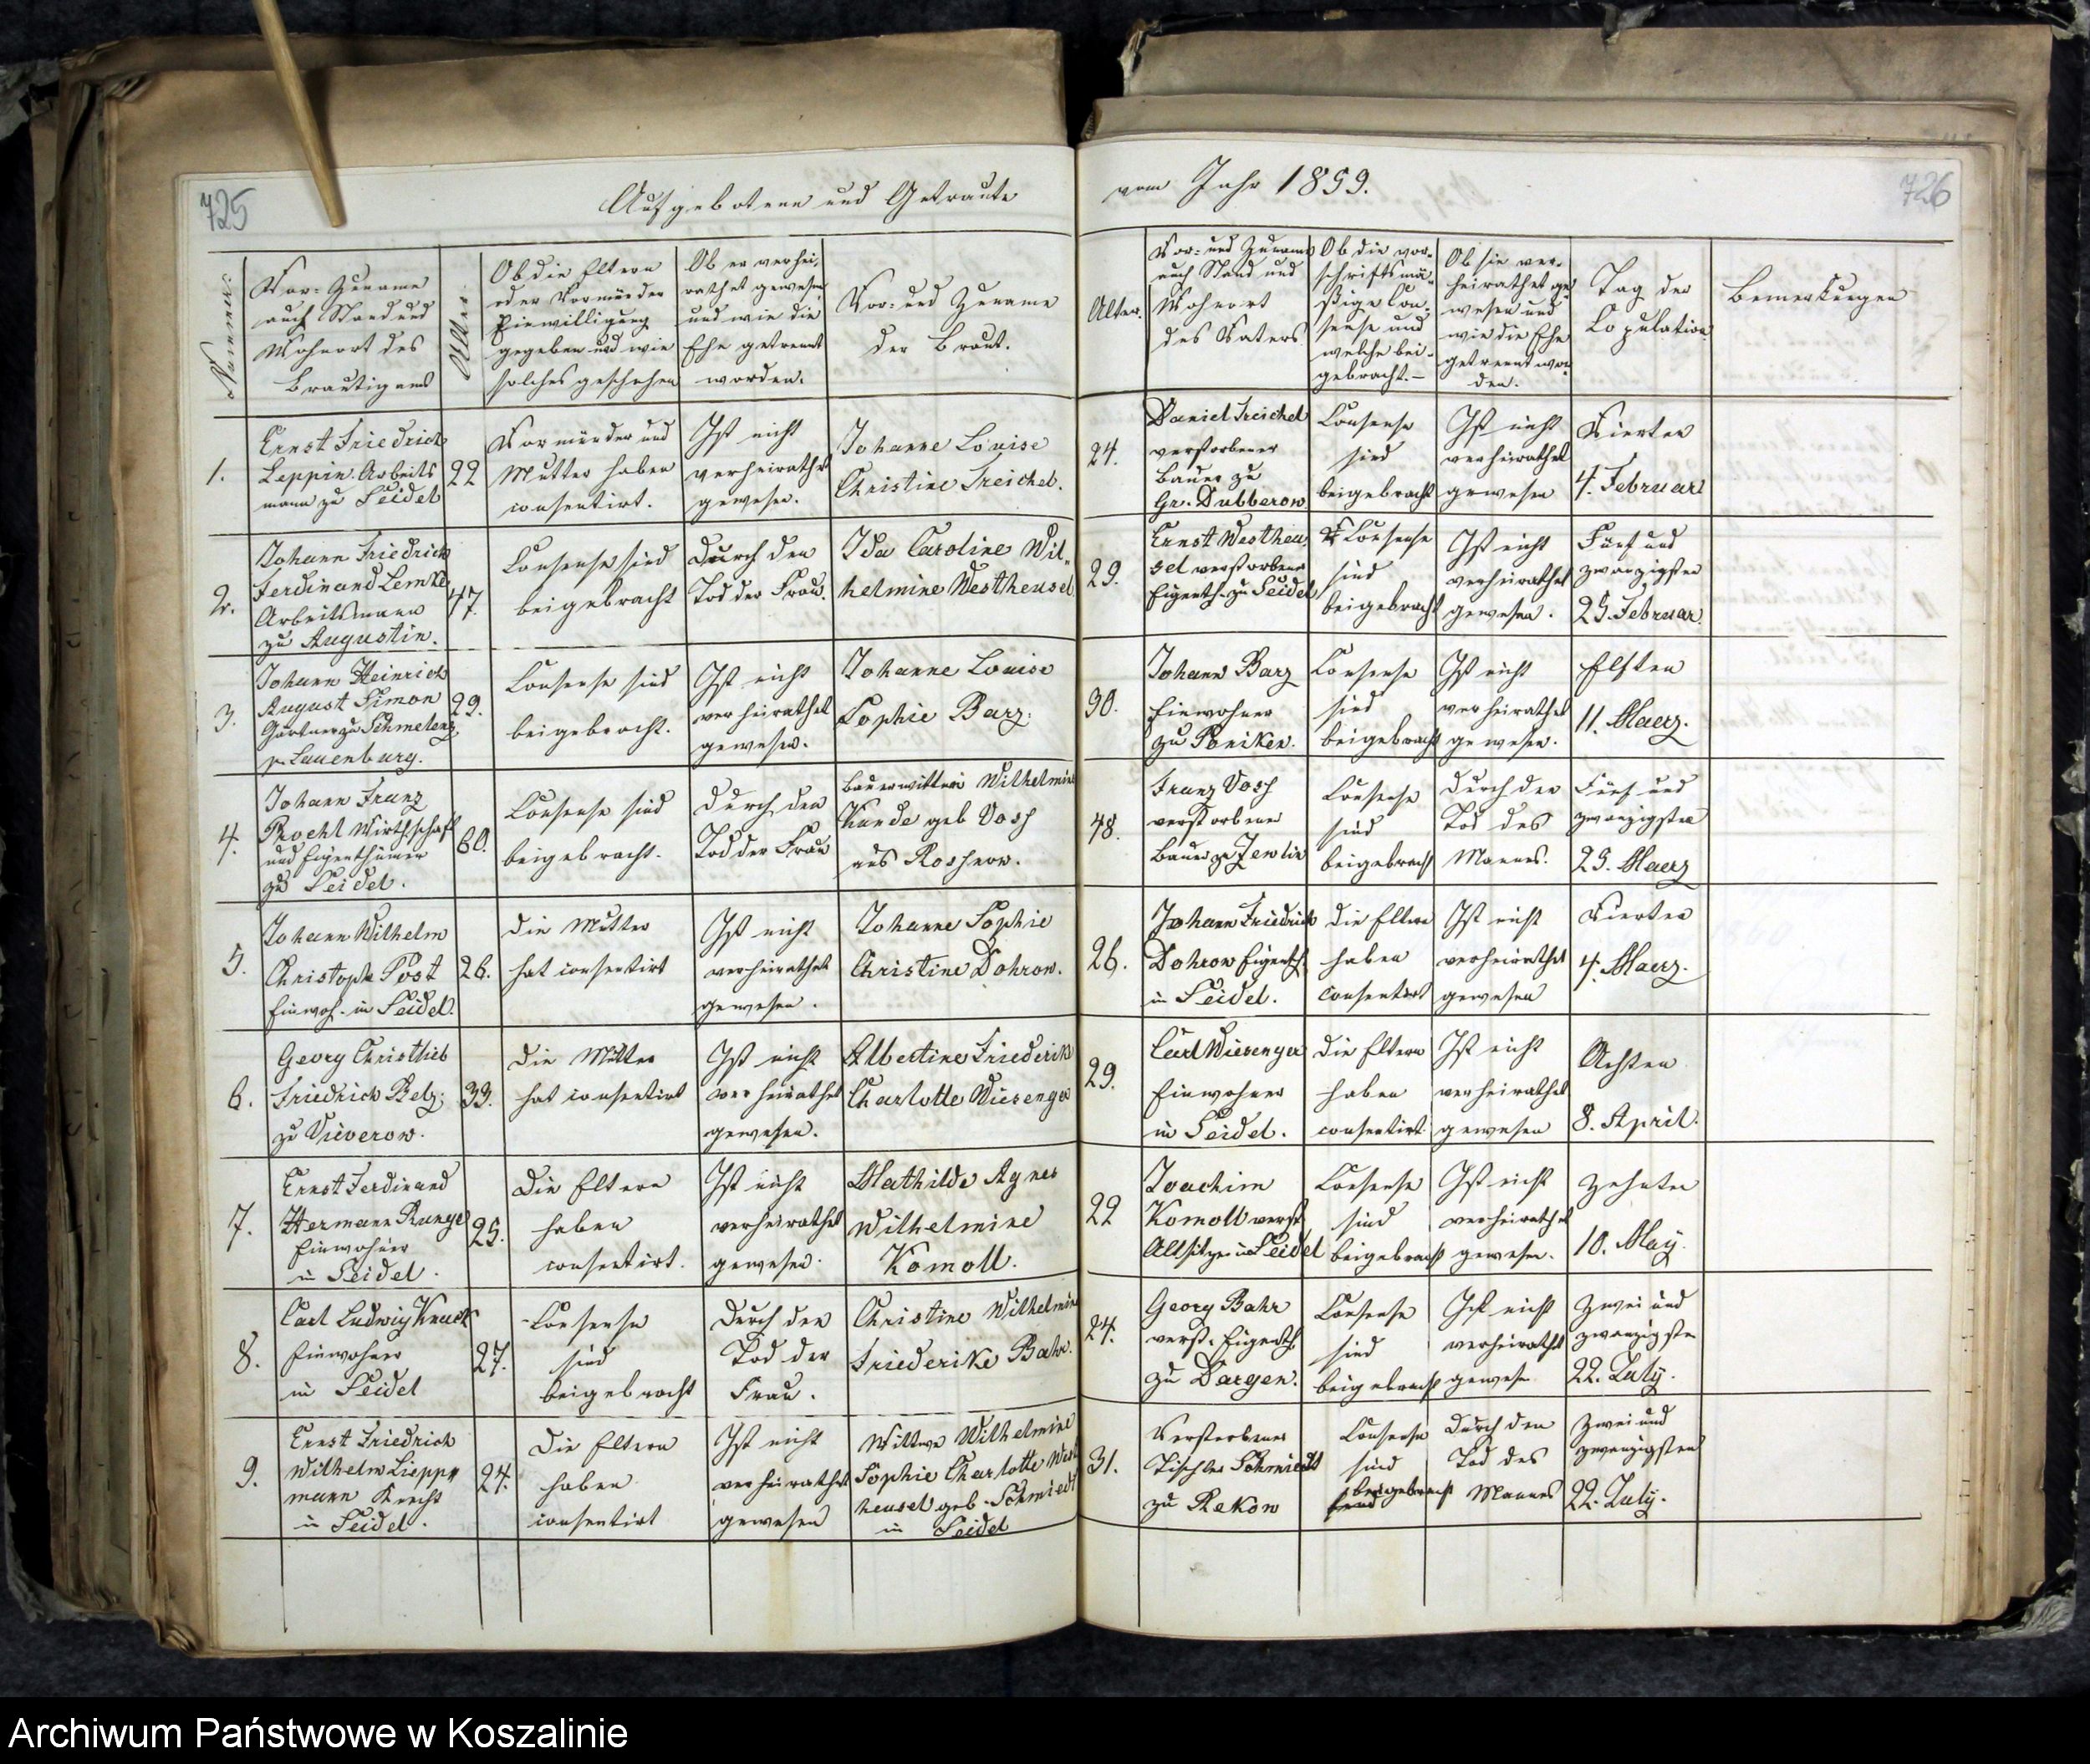 725
Aufgebotene und Getraute
vom Jahr 1859.
726
Nummer.
Vor- Zuname
auch Stand und
Wohnort des
Bräutigams
Alter.
Ob die Eltern
oder Vormünder
Einwilligung
gegeben und wie
solches geschehen
Ob er verhei-
rathet gewesen
und wie die
Ehe getrennt
worden.
Vor- und Zuname
der Braut.
Alter.
Vor- und Zuname
auch Stand und
Wohnort
des Vaters
Ob die vor-
schriftsmä-
ßige Con-
sense und
welche bei-
gebracht.-
Ob sie ver-
heirathet ge-
wesen und
wie die Ehe
getrennt wor-
den.
Tag der
Copulation
Bemerkungen
1.
Ernst Friedrich
Leppin. Arbeits
mann zu Seidel
22
Vormünder und
Mutter haben
consentirt.
Ist nicht
verheirathet
gewesen.
Johanne Louise
Christine Treichel.
24.
Daniel Treichel
verstorbener
Bauer zu
Gr. Dubberow
Consense
sind
beigebracht
Ist nicht
verheirathet
gewesen
Vierten
4. Februar
2.
Johann Friedrich
Ferdinand Lemke
Arbeitsmann
zu Augustin.
47.
Consense sind
beigebracht
Durch den
Tod der Frau.
Ida Caroline Wil-
helmine Westheusel
29.
Ernst Westheu
sel verstorbener
Eigenth. zu Seidel
Consense
sind
beigebracht
Ist nicht
verheirathet
gewesen.
Fünf und
zwanzigsten
25. Februar
3.
Johann Heinrich
August Simon
Gärtner zu Schmelenz
p. Lauenburg.
29.
Consense sind
beigebracht.
Ist nicht
verheirathet
gewesen.
Johanne Louise
Sophie Barz.
30.
Johann Barz
Einwohner
zu Poniken.
Consense
sind
beigebracht
Ist nicht
verheirathet
gewesen.
Elften
11. Maerz.
4.
Johann Franz
Wirthschaft
und Eigenthümer
zu Seidel.
60.
Consense sind
beigebracht.
Durch den
Tod der Frau
Bauerwittwe Wilhelmine
Kunde geb Vosß
aus Rosßnow.
48.
Franz Vosß
verstorbener
Bauer zu Jewlin
Consense
sind
beigebracht
Durch den
Tod des
Mannes.
Fünf und
zwanzigsten
25. Maerz
5.
Johann Wilhelm
Christoph Post
Einwoh. in Seidel.
26.
Die Mutter
hat consentirt
Ist nicht
verheirathet
gewesen.
Johanne Sophie
Christine Dohrow.
26.
Johann Friedrich
Dohrow Eigenth.
in Seidel.
Die Eltern
haben
consentirt
Ist nicht
verheirathet
gewesen
Vierten
4. Maerz.
6.
Georg Christlieb
Friedrich Belz.
zu Viverow.
33.
Die Mutter
hat consentirt
Ist nicht
verheirathet
gewesen.
Albertine Friederike
Charlotte Wiesenger
29.
Carl Wiesenger
Einwohner
in Seidel.
Die Eltern
haben
consentirt
Ist nicht
verheirathet
gewesen
Achten
8. April.
7.
Ernst Ferdinand
Hermann Runge
Einwohner
in Seidel.
25.
Die Eltern
haben
consentirt.
Ist nicht
verheirathet
gewesen.
Mathilde Agnes
Wilhelmine
Komoll.
22
Joachim
Komoll verst.
Altsitzer in Seidel
Consense
sind
beigebracht
Ist nicht
verheirathet
gewesen.
Zehnten
10. May.
8.
Carl Ludwig Knack
Einwohner
in Seidel
27.
Consense
sind
beigebracht
Durch den
Tod der
Frau.
Christine Wilhelmine
Friederike Bahr.
24.
Georg Bahr
verst. Eigenth.
zu Dargen.
Consense
sind
beigebracht
Ist nicht
verheirathet
gewesen
Zwei und
zwanzigsten
22. July.
9.
Ernst Friedrich
Wilhelm Liepp
mann Knecht
in Seidel.
24.
Die Eltern
haben
consentirt
Ist nicht
verheirathet
gewesen
Wittwe Wilhelmine
Sophie Charlotte West
heusel geb. Schmiedt
in Seidel
31.
Verstorbener
Tischler Schmiedt
zu Rekow
Consense
sind
beigebracht
Durch den
Tod des
Mannes
Zwei und
zwanzigsten
22. July.
Archiwum Państwowe w Koszalinie